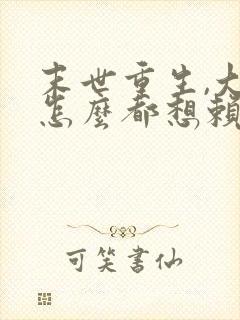 末世重生,大
怎麼都想賴
可笑書仙